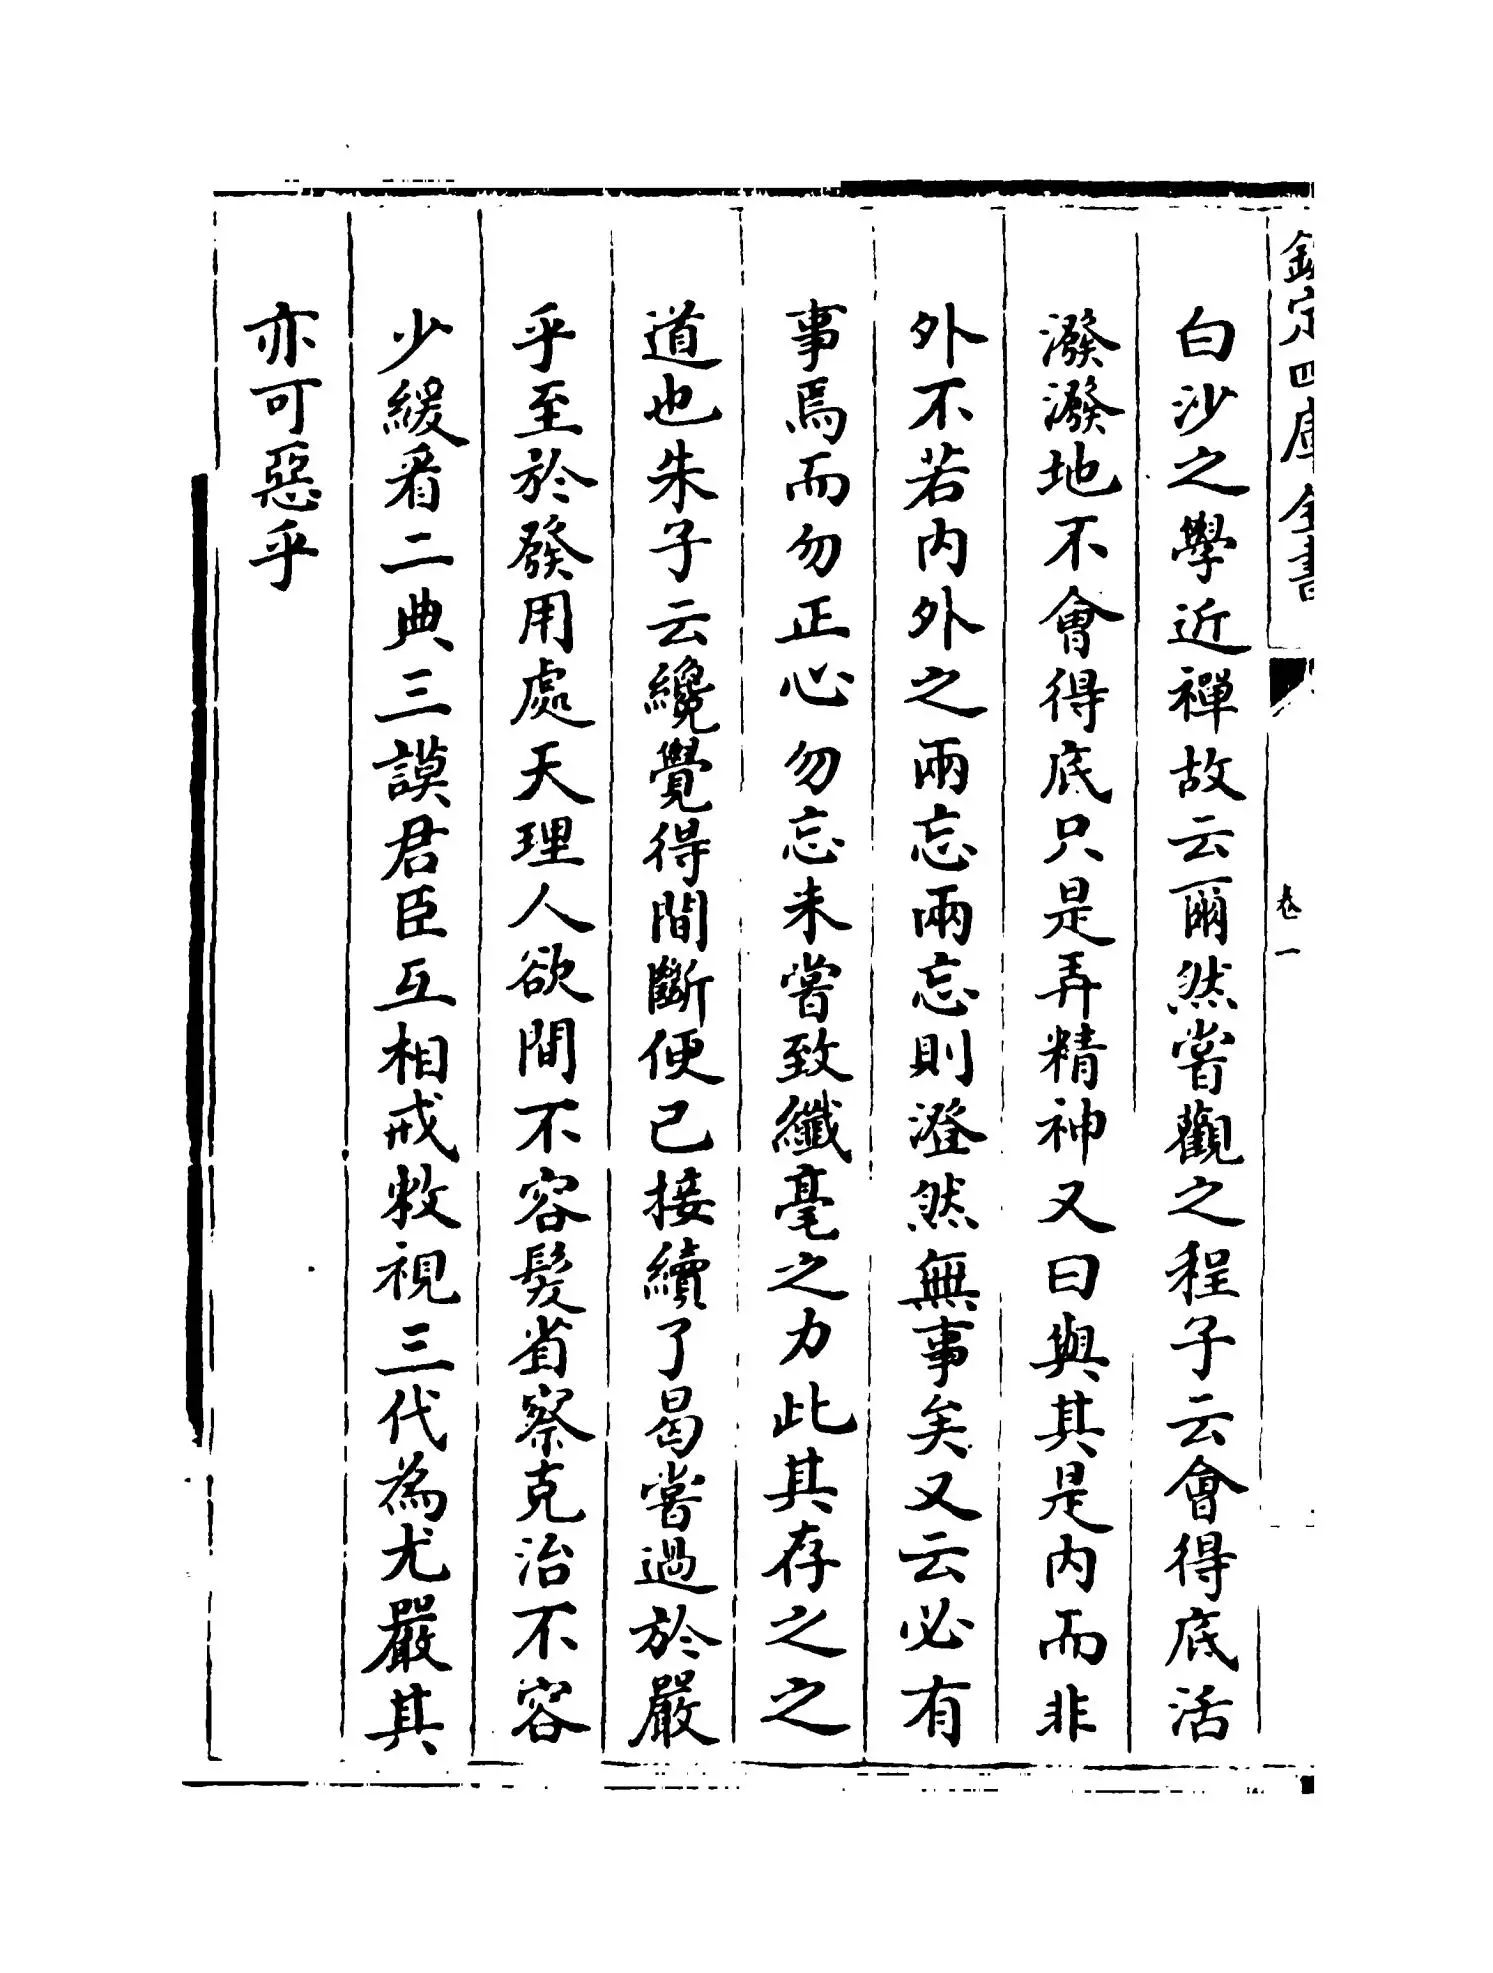 欽定四庫全書
卷一
白沙之學近禪故云爾然嘗觀之程子云會得底活
潑潑地不會得底只是弄精神又曰與其是內而非
外不若內外之兩忘兩忘則澄然無事矣又云必有
事焉而勿正心勿忘未嘗致纖毫之力此其存之之
道也朱子云纔覺得間斷便已接續了曷嘗過於嚴
乎至於發用處天理人欲間不容髮省察克治不容
少緩看二典三謨君臣互相戒敕視三代為尤嚴其
亦可惡乎